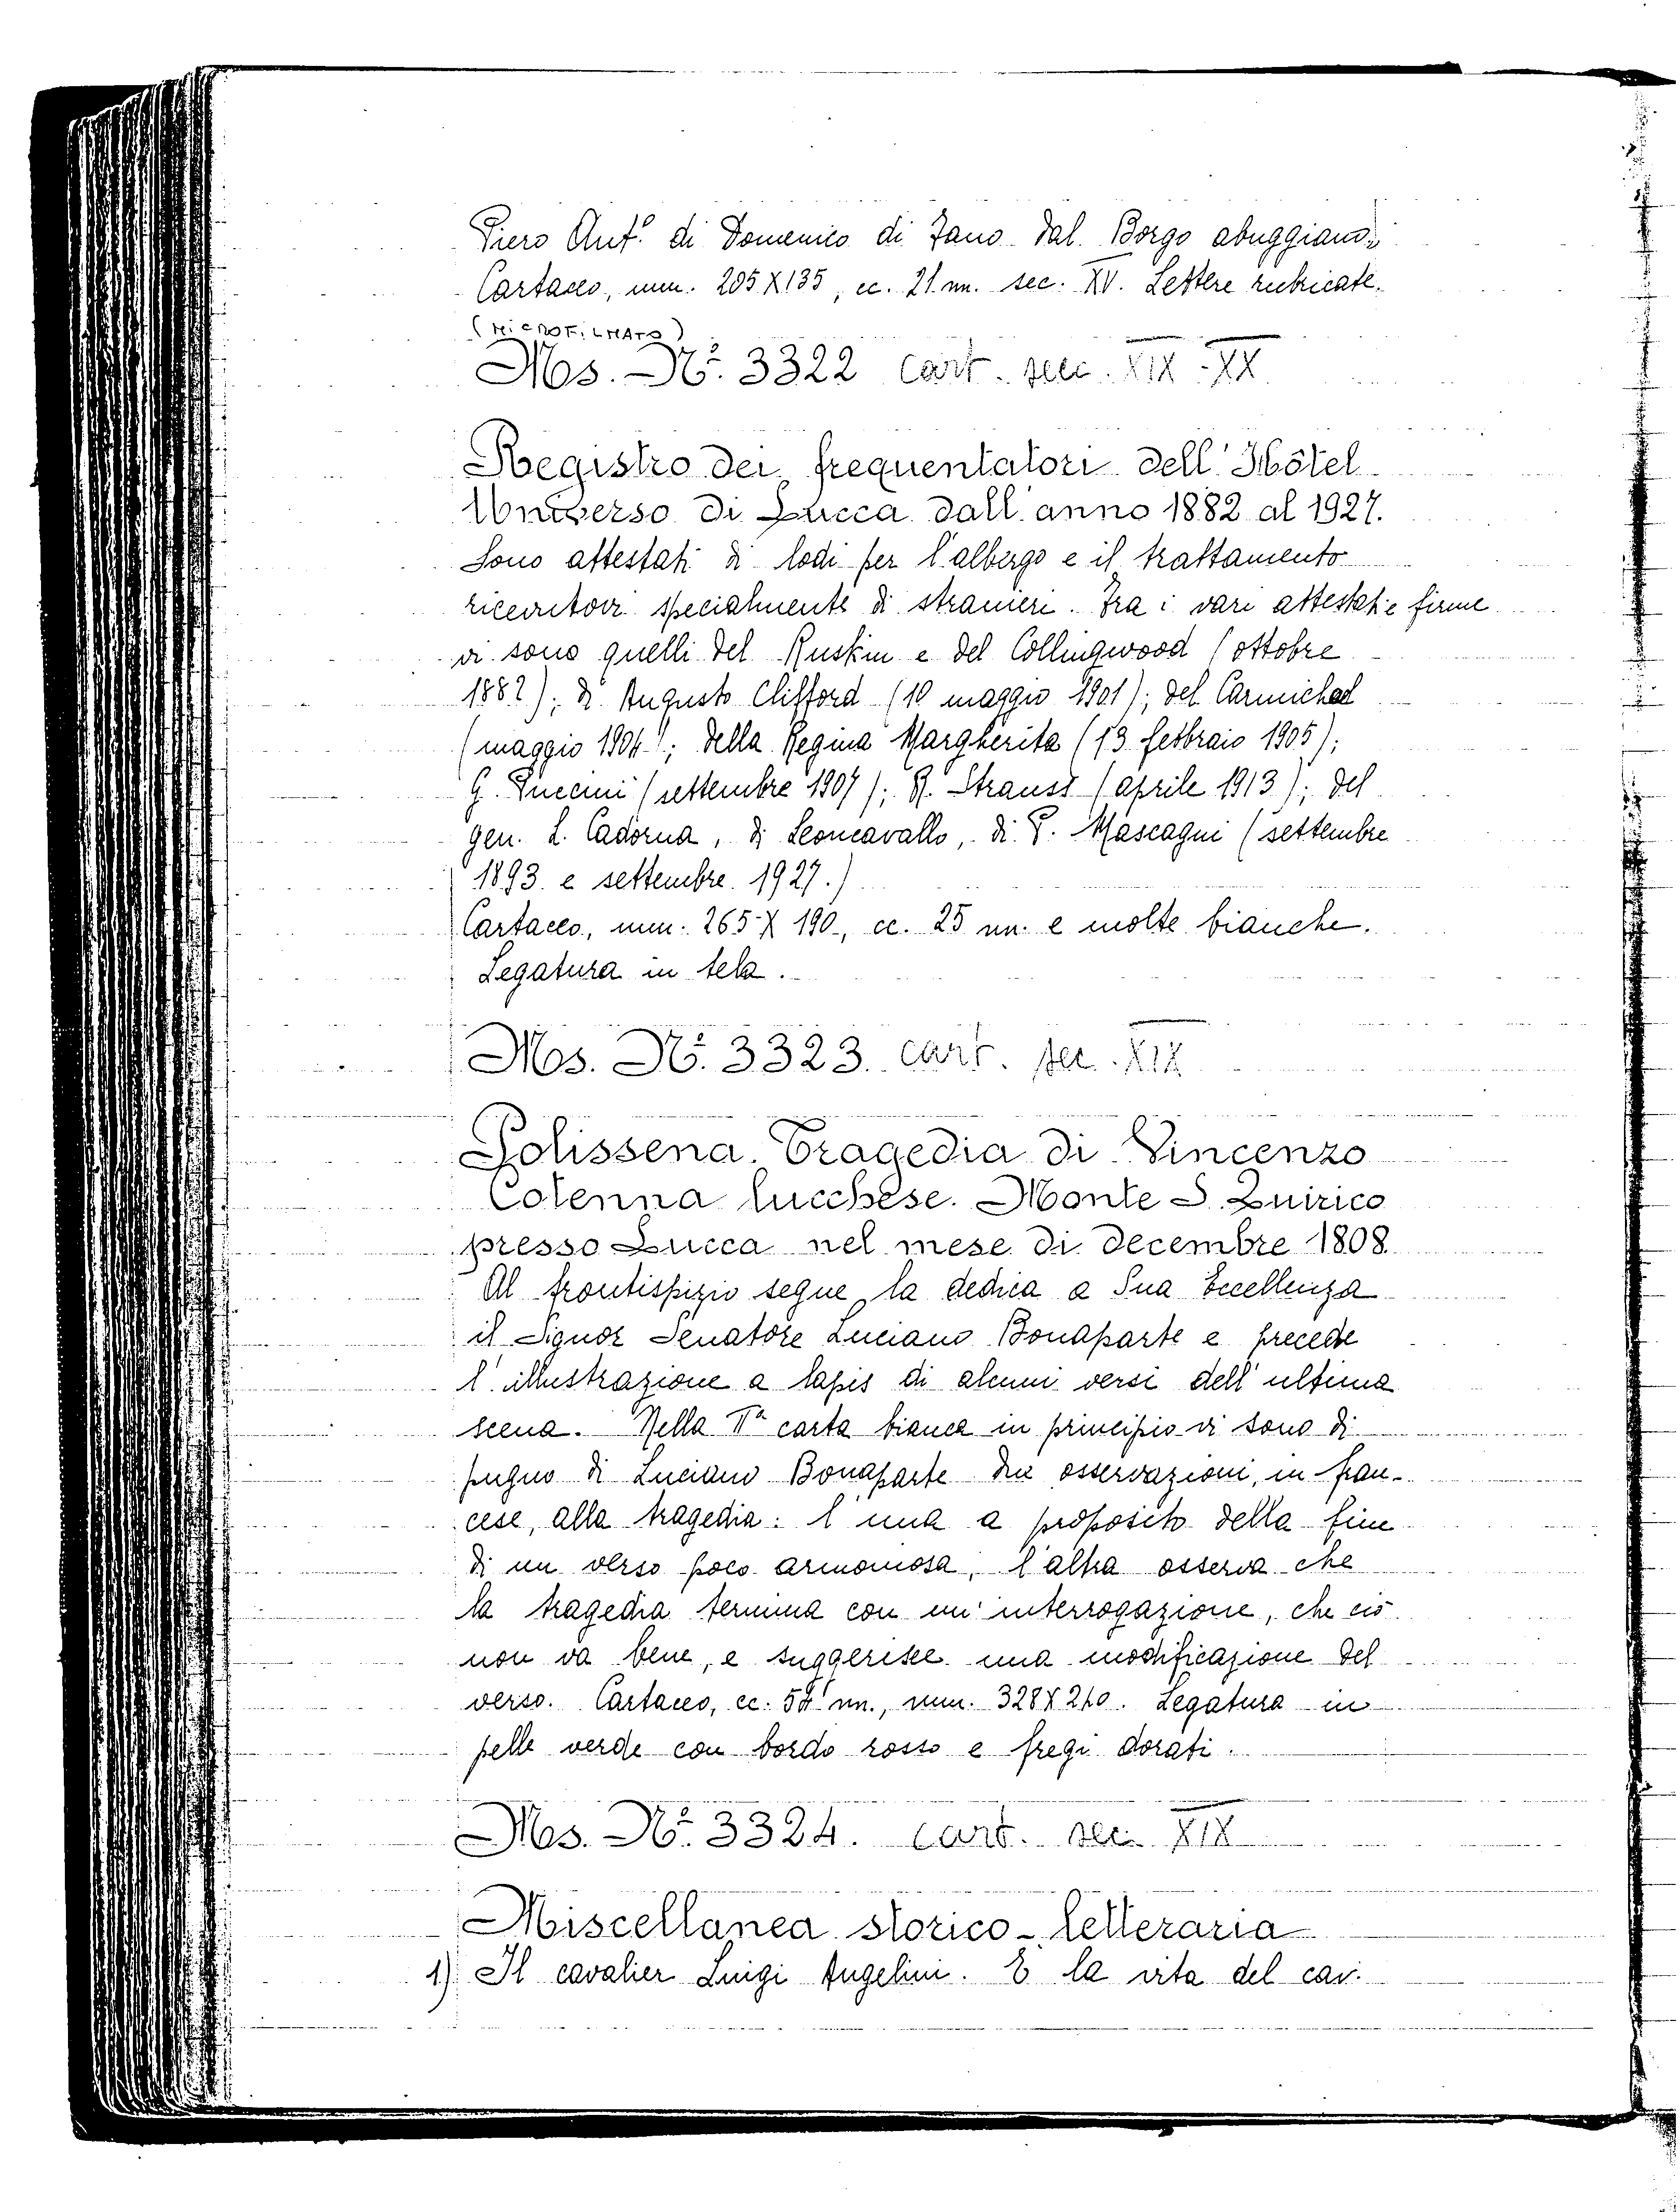 Piero Ant.º di Domenico di Fano dal Borgo abuggiano.
Cartaceo, mm. 205 X 135, cc. 21 nn. sec. XV. Lettere rubricate.
(MICROFILMATO)
Ms. Nº. 3322 cart. sec. XIX-XX
Registro dei frequentatori dell'Hôtel
Universo di Lucca dall'anno 1882 al 1927.
Sono attestati di lodi per l'albergo e il trattamento
ricevutovi specialmente di stranieri. Fra i vari attestati e firme
vi sono quelli del Ruskin e del Collingwood (ottobre
1882); di Augusto Clifford (10 maggio 1901); del Carmichael
(maggio 1904); della Regina Margherita (13 febbraio 1905);
G. Puccini (settembre 1907); R. Strauss (aprile 1913); del
gen. L. Cadorna, di Leoncavallo, di P. Mascagni (settembre
1893 e settembre 1927.)
Cartaceo, mm. 265 X 190, cc. 25 nn. e molte bianche.
Legatura in tela.
Ms. Nº. 3323. cart. sec. XIX
Polissena. Tragedia di Vincenzo
Cotenna lucchese. Monte S. Quirico
presso Lucca nel mese di decembre 1808.
Al frontispizio segue la dedica a Sua Eccellenza
il Signor Senatore Luciano Bonaparte e precede
l'illustrazione a lapis di alcuni versi dell'ultima
scena. Nella IIª carta bianca in principio vi sono di
pugno di Luciano Bonaparte due osservazioni, in fran-
cese, alla tragedia: l'una a proposito della fine
di un verso poco armoniosa, l'altra osserva che
la tragedia termina con un'interrogazione, che ciò
non va bene, e suggerisce una modificazione del
verso. Cartaceo, cc. nn., mm. 328 X 210. Legatura in
pelle verde con bordo rosso e fregi dorati.
Ms. Nº. 3324. cart. sec. XIX
Miscellanea storico-letteraria
1) Il cavalier Luigi Angelini. È la vita del cav.